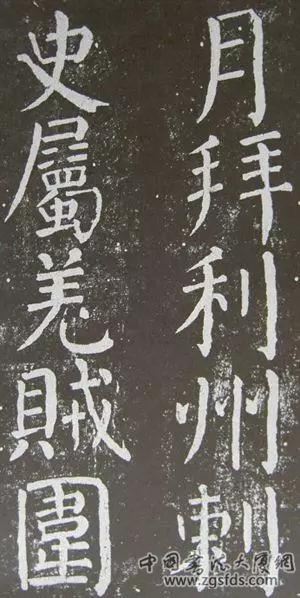 月拜利州刺
史屬羌賊圍
中國書法大厦網
www.zgsfds.com